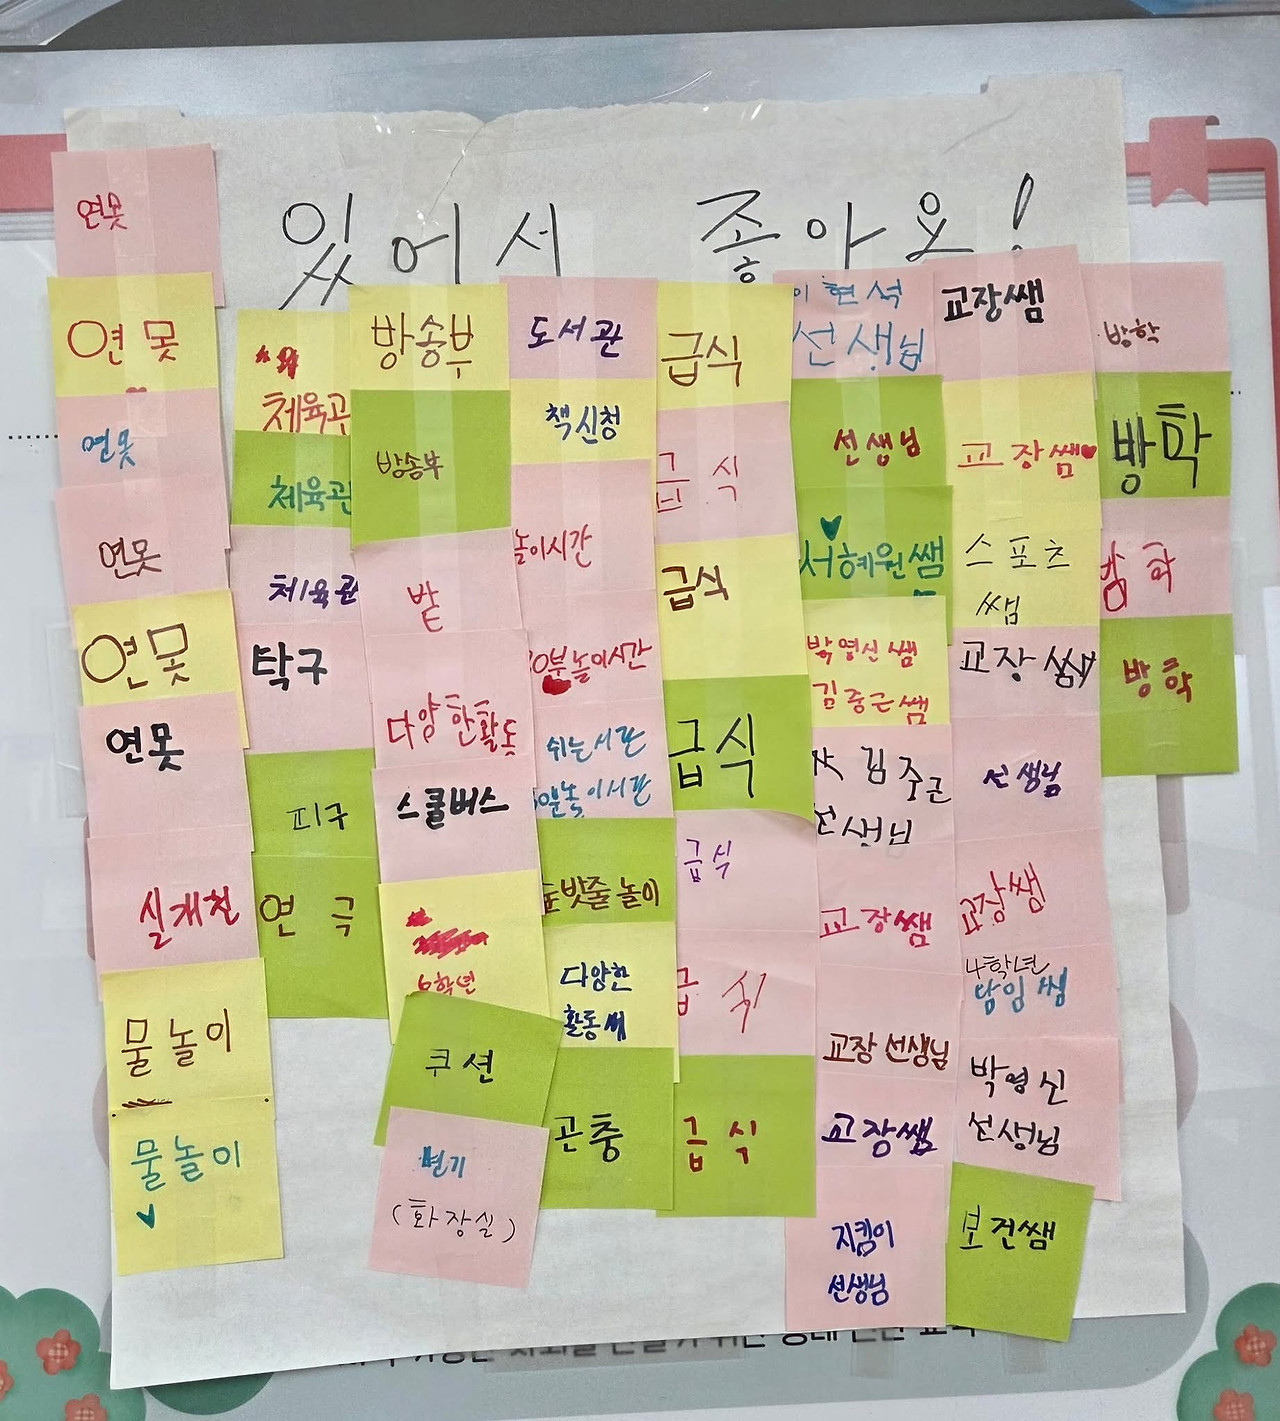 있어서 좋아요!
연못
연못
연못
연못
연못
연못
실개천
물놀이
물놀이
체육관
체육관
체육관
탁구
피구
연극
방송부
방송부
밭
다양한활동
스쿨버스
6학년
쿠션
변기
(화장실)
도서관
책신청
놀이시간
0부놀이시간
쉬는시간
놀이시간
밧줄놀이
다양한
활동
곤충
급식
급식
급식
급식
급식
급식
급식
이현석
선생님
선생님
서혜원쌤
박영신쌤
김중근쌤
김중근
선생님
교장쌤
교장선생님
교장쌤
지킴이
선생님
교장쌤
교장쌤
스포츠
쌤
교장쌤
선생님
교장쌤
4학년
담임쌤
박영신
선생님
보건쌤
방학
방학
방학
방학